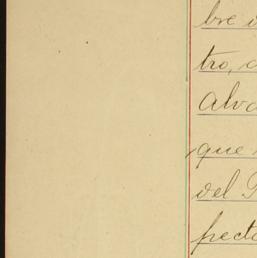 bre
tro,
Alva
que
del
pecto